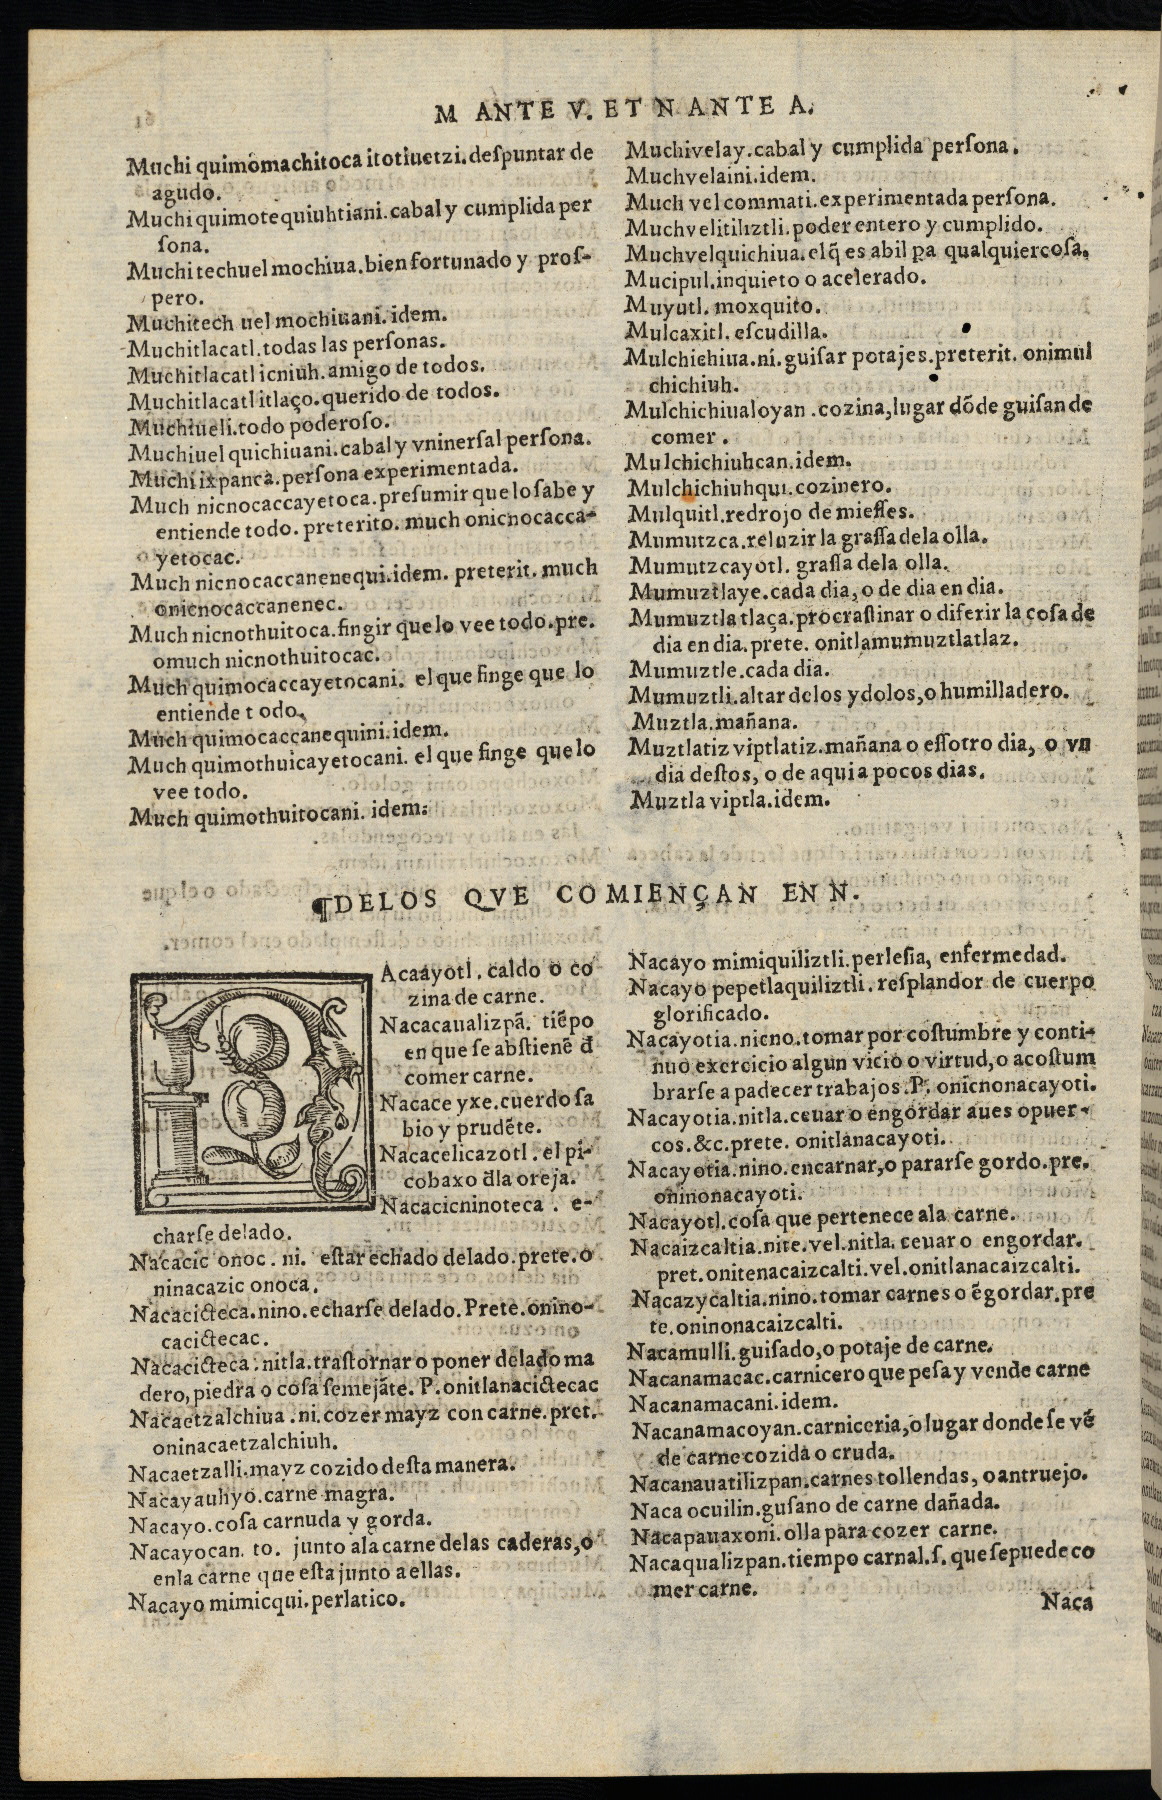 M ANTE V. ET N ANTE A.
Muchi quimomachitoca itotiuetzi. deſpuntar de
agudo.
Muchi quimotequiuhtiani. cabal y cumplida per
ſona.
Muchi techuel mochiua. bien fortunado y proſ-
pero.
Muchitech uel mochiuani. idem.
Muchitlacatl. todas las perſonas.
Muchitlacatl icniuh. amigo de todos.
Muchitlacatl itlaço. querido de todos.
Muchiueli. todo poderoſo.
Muchiuel quichiuani. cabal y vninerſal perſona.
Muchi ixpanca. perſona experimentada.
Much nicnocaccayetoca. preſumir que lo ſabe y
entiende todo. preterito. much onicnocacca-
yetocac.
Much nicnocaccanenequi. idem. preterit. much
onicnocaccanenec.
Much nicnothuitoca. fingir que lo vee todo. pre.
omuch nicnothuitocac.
Much quimocaccayetocani. el que finge que lo
entiende t odo.
Much quimocaccanequini. idem.
Much quimothuicayetocani. el que finge que lo
vee todo.
Much quimothuitocani. idem.
Muchivelay. cabal y cumplida perſona.
Muchvelaini. idem.
Much vel commati. experimentada perſona.
Muchvelitiliztli. poder entero y cumplido.
Muchvelquichiua. elq̃ es abil ꝑa qualquier coſa.
Mucipul. inquieto o acelerado.
Muyutl. moxquito.
Mulcaxitl. eſcudilla.
Mulchichiua. ni. guiſar potajes. preterit. onimul
chichiuh.
Mulchichiualoyan. cozina, lugar dõde guiſan de
comer.
Mulchichiuhcan. idem.
Mulchichiuhqui. cozinero.
Mulquitl. redrojo de mieſſes.
Mumutzca. reluzir la graſſa dela olla.
Mumutzcayotl. graſſa dela olla.
Mumuztlaye. cada dia, o de dia en dia.
Mumuztla tlaça. procraſtinar o diferir la coſa de
dia en dia. prete. onitlamumuztlatlaz.
Mumuztle. cada dia.
Mumuztli. altar delos ydolos, o humilladero.
Muztla. mañana.
Muztlatiz viptlatiz. mañana o eſſotro dia, o vn
dia deſtos, o de aqui a pocos dias.
Muztla viptla. idem.
¶DELOS QVE COMIENÇAN EN N.
NAcaayotl. caldo o co
zina de carne.
Nacacaualizpã. tiẽpo
en que ſe abſtienẽ đ
comer carne.
Nacace yxe. cuerdo ſa
bio y prudẽte.
Nacacelicazotl. el pi-
cobaxo đla oreja.
Nacacicninoteca. e-
charſe delado.
Nacacic onoc. ni. eſtar echado delado. prete. o
ninacazic onoca.
Nacacicteca. nino. echarſe delado. Prete. onino-
cacictecac.
Nacacicteca. nitla. traſtornar o poner delado ma
dero, piedra o coſa ſemejãte. P. onitlanacictecac
Nacaetzalchiua. ni. cozer mayz con carne. pret.
oninacaetzalchiuh.
Nacaetzalli. mayz cozido deſta manera.
Nacayauhyo. carne magra.
Nacayo. coſa carnuda y gorda.
Nacayocan. to. junto ala carne delas caderas, o
enla carne que eſta junto a ellas.
Nacayo mimicqui. perlatico.
Nacayo mimiquiliztli. perleſia, enfermedad.
Nacayo pepetlaquiliztli. reſplandor de cuerpo
glorificado.
Nacayotia. nicno. tomar por coſtumbre y conti-
nuo exercicio algun vicio o virtud, o acoſtum
brarſe a padecer trabajos. P. onicnonacayoti.
Nacayotia. nitla. ceuar o engordar aues o puer-
cos. &c. prete. onitlanacayoti.
Nacayotia. nino. encarnar, o pararſe gordo. pre.
oninonacayoti.
Nacayotl. coſa que pertenece ala carne.
Nacaizcaltia. nite. vel. nitla. ceuar o engordar.
pret. onitenacaizcalti. vel. onitlanacaizcalti.
Nacazycaltia. nino. tomar carnes o ẽgordar. pre
te. oninonacaizcalti.
Nacamulli. guiſado, o potaje de carne.
Nacanamacac. carnicero que peſa y vende carne
Nacanamacani. idem.
Nacanamacoyan. carniceria, o lugar donde ſe vẽ
de carne cozida o cruda.
Nacanauatilizpan. carnes tollendas, o antruejo.
Naca ocuilin. guſano de carne dañada.
Nacapauaxoni. olla para cozer carne.
Nacaqualizpan. tiempo carnal. ſ. que ſe puede co
mer carne.
Naca